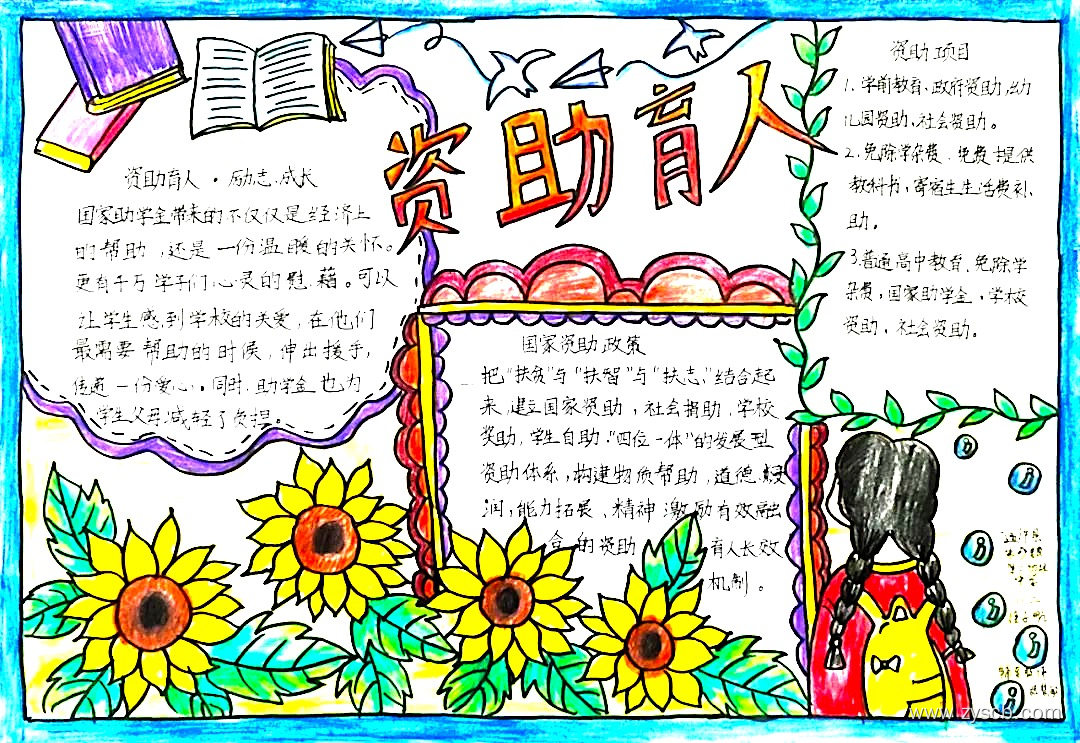 资助育人
资助育人·励志.成长
国家助学金带来的不仅仅是经济上
的帮助，还是一份温暖的关怀。
更有千万学子们心灵的慰藉。可以
让学生感到学校的关爱，在他们
最需要帮助的时候，伸出援手，
传递一份爱心。同时，助学金也为
学生父母减轻了负担。
国家资助政策
把“扶贫”与“扶智”与“扶志”结合起
来，建立国家资助，社会捐助，学校
奖助，学生自助“四位一体”的发展型
资助体系，构建物质帮助，道德浸
润，能力拓展，精神激励有效融
合的资助育人长效
机制。
资助项目
1.学前教育、政府资助,幼
儿园资助、社会资助。
2.免除学杂费、免费提供
教科书，寄宿生生活费补
助。
3.普通高中教育，免除学
杂费，国家助学金，学校
资助，社会资助。
www.zysch.com